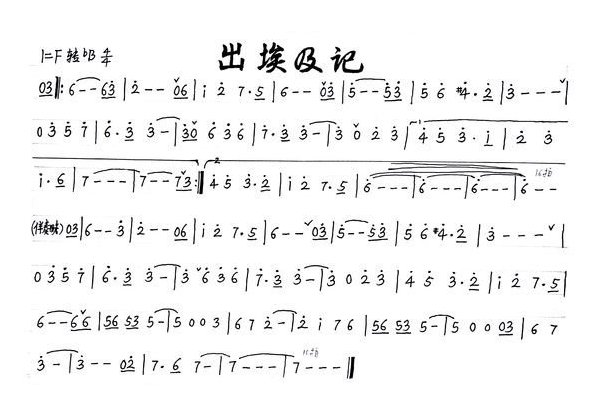 出埃及记
1=F 转 ♭B 4/4
03‖: 6 - - 63 | 2 - - 06 | i 2 7·5 | 6 - - 03 | 5 - - 53 | 5 6 #4·2 | 3 - - - |
0 3 5 7 | 6·3 3 - | 30 6 3 6 | 7·3 3 - | 3 0 2 3 | 1 4 5 3·i | 2 3
i·6 | 7 - - - | 7 - - 73 :‖ 2 4 5 3·2 | i 2 7·5 | 6 - - - | 6 - - - | 6 - - - | 6 - -
(伴奏) 03 | 6 - - 3 | 2 - - 06 | i 2 7·5 | 6 - - 03 | 5 - - 53 | 5 6 #4·2 | 3 - - - |
0 3 5 7 | 6·3 3 - | 3 6 3 6 | 7·3 3 - | 3 0 2 3 | 4 5 3·2 | i 2 7·5 |
6 - - 66 | 56 53 5 - | 5 0 0 3 | 6 7 2 - | 2 i 7 6 | 56 53 5 - | 5 0 0 03 | 6 7
3 - | 3 - - 02 | 7·6 7 - | 7 - - - | 7 - - - ‖